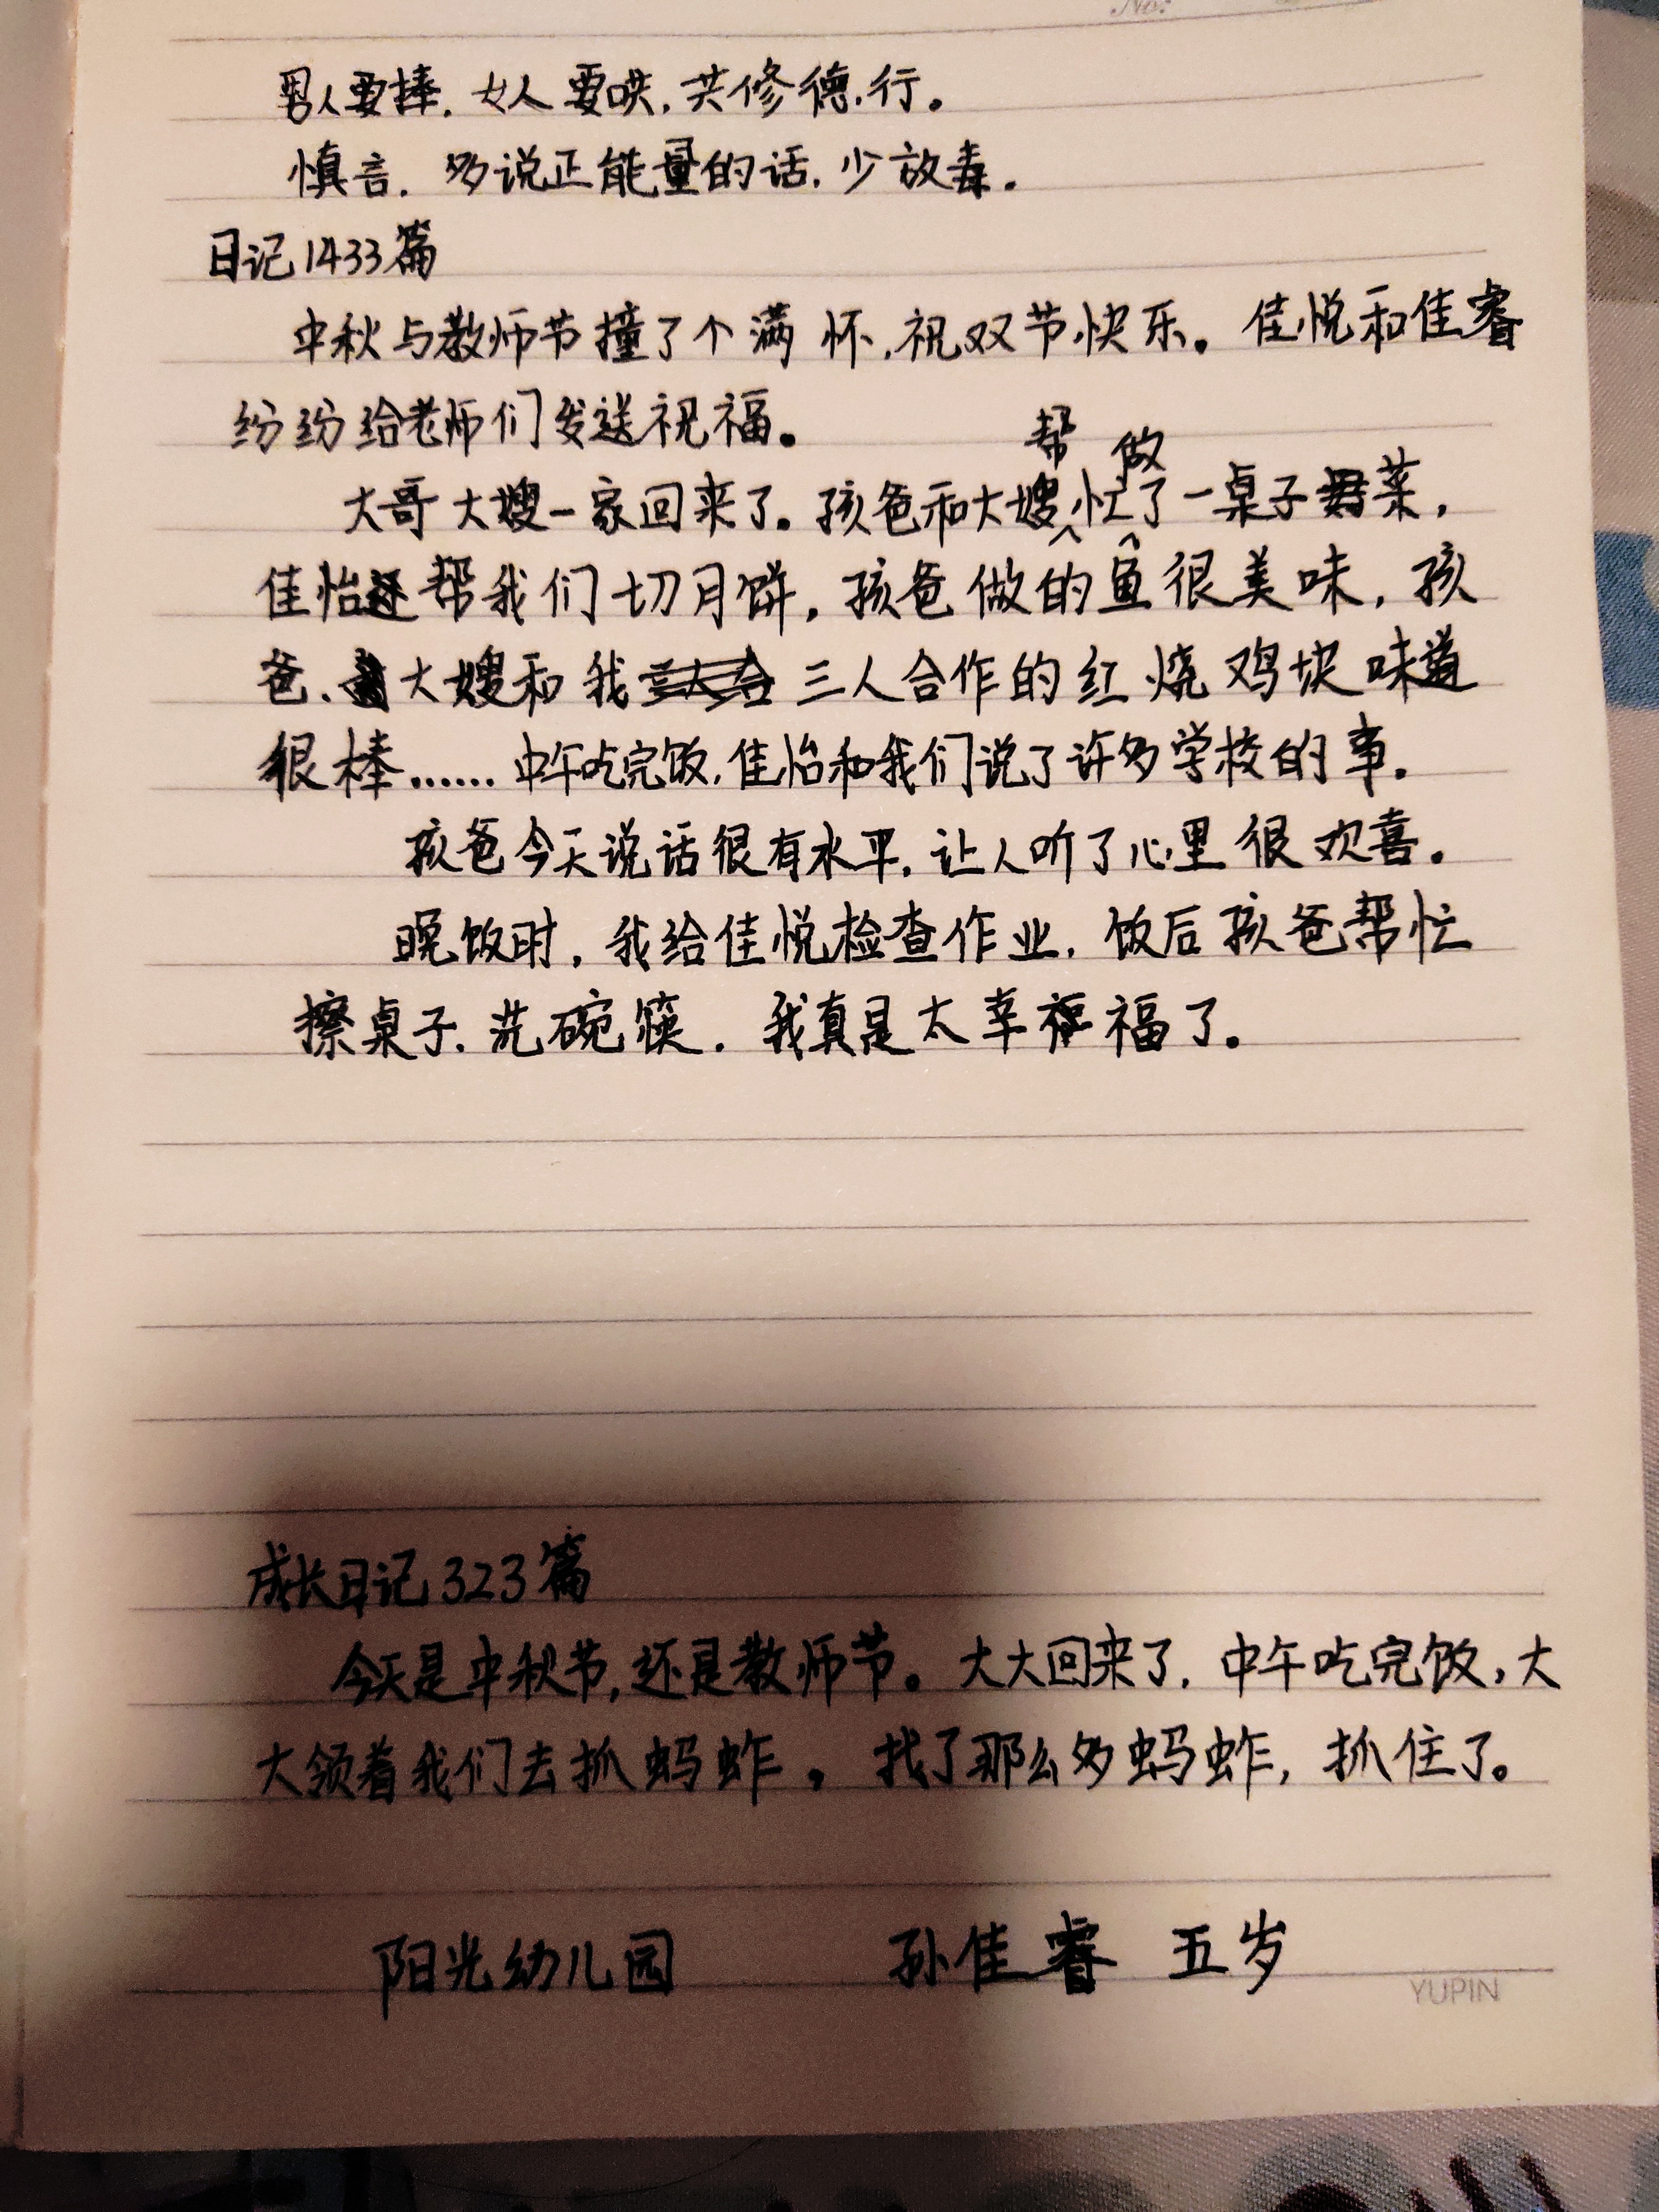 No:
男人要捧，女人要哄，共修德行。
慎言，多说正能量的话，少放毒。
日记1433篇
中秋与教师节撞了个满怀，祝双节快乐。佳悦和佳睿
纷纷给老师们发送祝福。
大哥大嫂一家回来了。孩爸和大嫂帮忙做了一桌子菜，
佳怡还帮我们切月饼，孩爸做的鱼很美味，孩
爸、大嫂和我三人合作的红烧鸡块味道
很棒……中午吃完饭，佳怡和我们说了许多学校的事。
孩爸今天说话很有水平，让人听了心里很欢喜。
晚饭时，我给佳悦检查作业，饭后孩爸帮忙
擦桌子、洗碗筷。我真是太幸福了。
成长日记323篇
今天是中秋节，还是教师节。大大回来了，中午吃完饭，大
大领着我们去抓蚂蚱，找了那么多蚂蚱，抓住了。
阳光幼儿园 孙佳睿 五岁
YUPIN